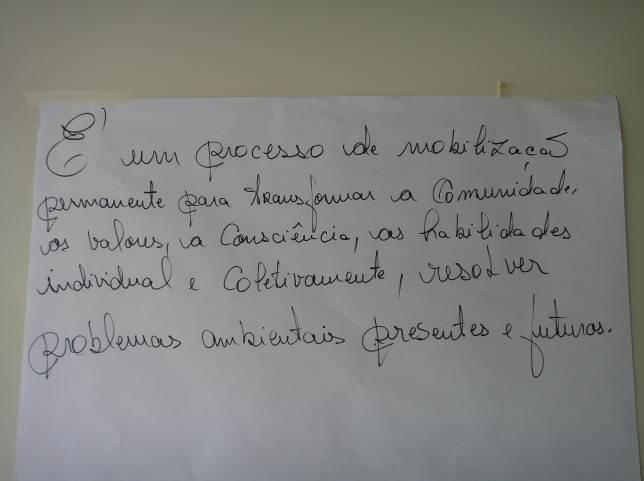 É um processo de mobilização
permanente para transformar a comunidade,
os valores, a consciência, as habilidades
individual e coletivamente, resolver
problemas ambientais presentes e futuros.